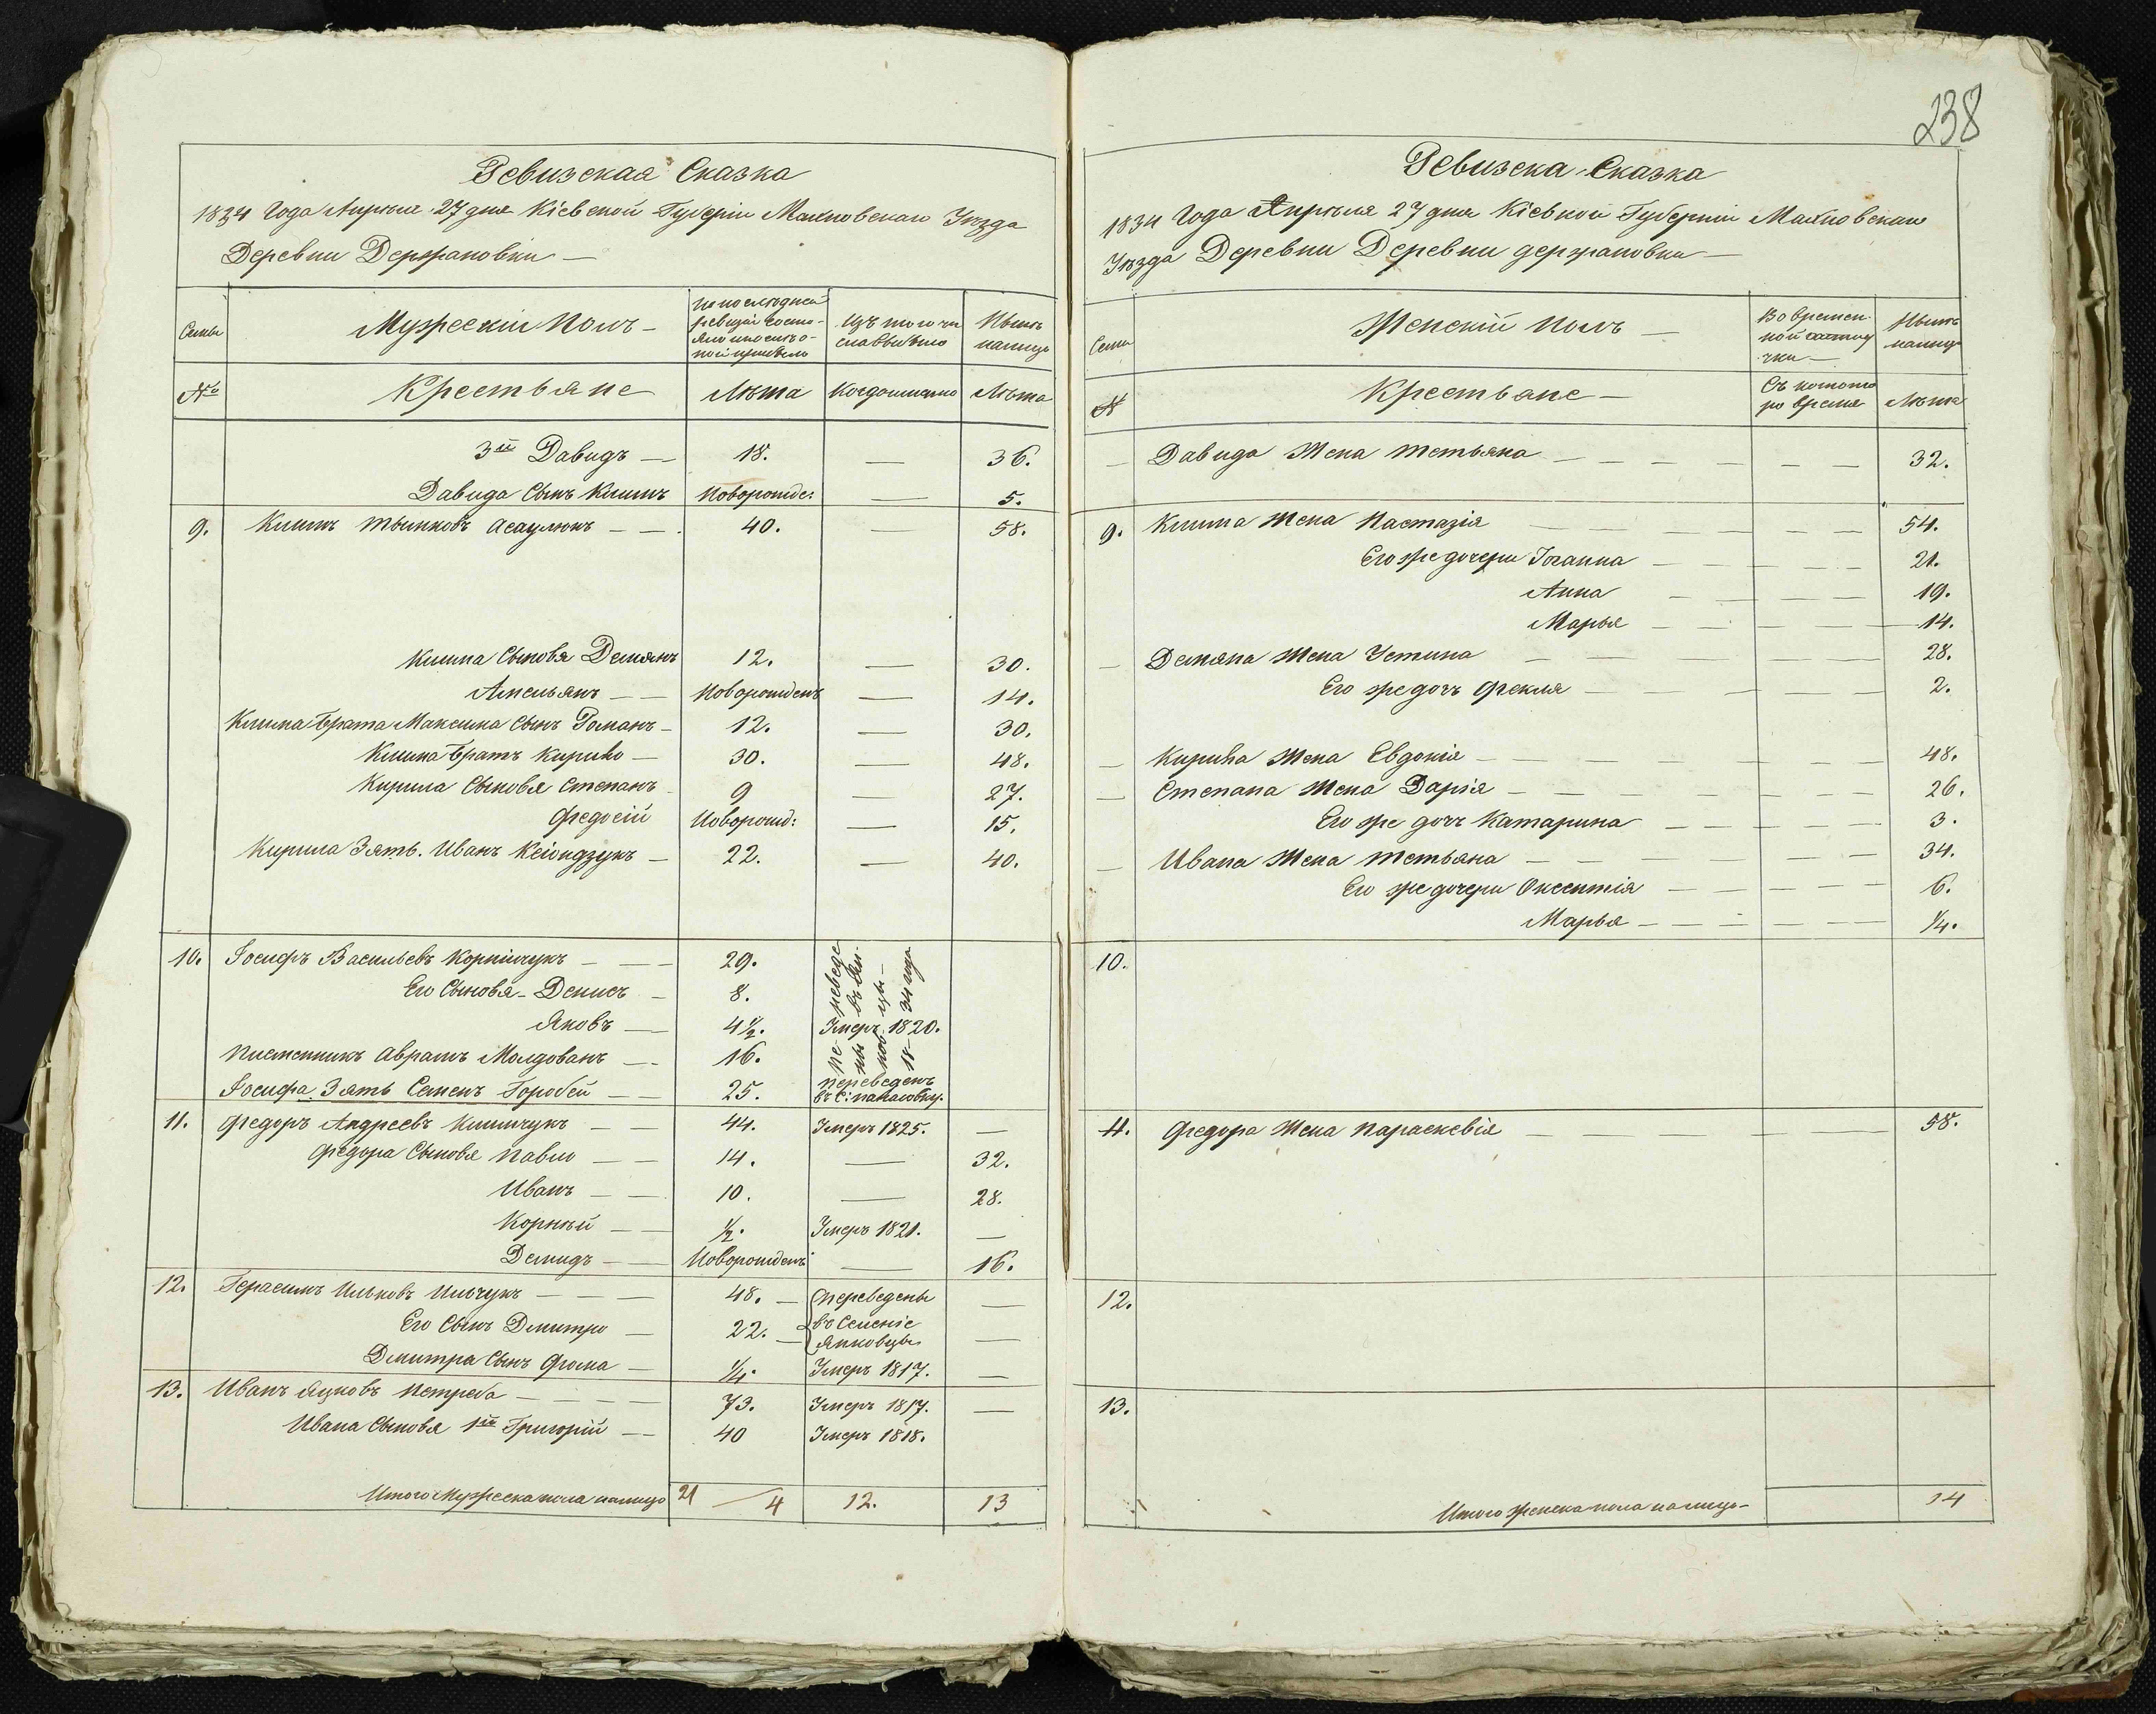 238
Ревизская Сказка
1834 Года Апреля 27 дня Кіевской Губерніи Махновскаго Уезда
Деревни Держановки —
Семьи
Мужескій полъ —
По последней ревизіи состояло и после оной прибыло
Изъ того числа выбыло
Ныне налицо
№
Крестьяне
Лѣта
Когда именно
Лѣта
3й Давидъ — 18. — 36.
Давида Сынъ Климъ Новорожде: — 5.
9. Климъ Тымковъ Асаулюкъ — — 40. — 58.
Клима Сыновья Демянъ 12. — 30.
Амельянъ — — Новорожденъ — 14.
Клима брата Максима Сынъ Романъ — 12. — 30.
Клима братъ Кирило — 30. — 48.
Кирила Сыновья Степанъ 9 — 27.
Федосій Новорожд: — 15.
Кирила Зять. Иванъ — 22. — 40.
10. Іосифъ Васильевъ Корнійчукъ — — — 29.
Его Сыновья — Денисъ — 8.
Яковъ — 4½. Умеръ 1820.
Племенникъ Аврамъ Молдованъ — 16.
Іосифа Зять Семенъ Горобей — — 25. переведенъ
11. Федоръ Андреевъ Климчукъ — — 44. Умеръ 1825. —
Федора Сыновья Павло — — 14. — 32.
Иванъ — — 10. — 28.
Корнѣй — — ½. Умеръ 1821. —
Демидъ — — Новорожденъ — 16.
12. Герасимъ Ильковъ Ильчукъ — — — 48. — Переведены —
Его Сынъ Дмитро — 22. — въ Селеніе Янковцы —
Дмитра Сынъ Фома — ¼. Умеръ 1817. —
13. Иванъ Яцковъ Ястреба — — — 73. Умеръ 1817. —
Ивана Сыновья 1й Григорій — 40 Умеръ 1818.
Итого Мужеска пола налицо 21 4 12. 13
Ревизска Сказка
1834 Года Апреля 27 дня Кіевкой Губерніи Махновскаго
Уѣзда Деревни Деревни держановки —
Семьи
Женскій полъ —
Во временной отлучки —
Ныне налицо
№
Крестьяне —
Съ котораго время
Лѣта
— Давида Жена Тетьяна — 32.
9. Клима Жена Настазія — 54.
Его же дочери Іоанна — 21.
Анна — 19.
Марья — 14.
— Демяна Жена Устина — 28.
Его же дочъ Фекля — 2.
— Кирила Жена Евдокія — 48.
— Степана Жена Дарія — 26.
Его же дочъ Катарина — 3.
— Ивана Жена Тетьяна — 34.
Его же дочери Оксентія — 6.
Марья — ¼.
10.
11. Федора Жена Параскевія — 58.
12.
13.
Итого женска пола налицо — 14